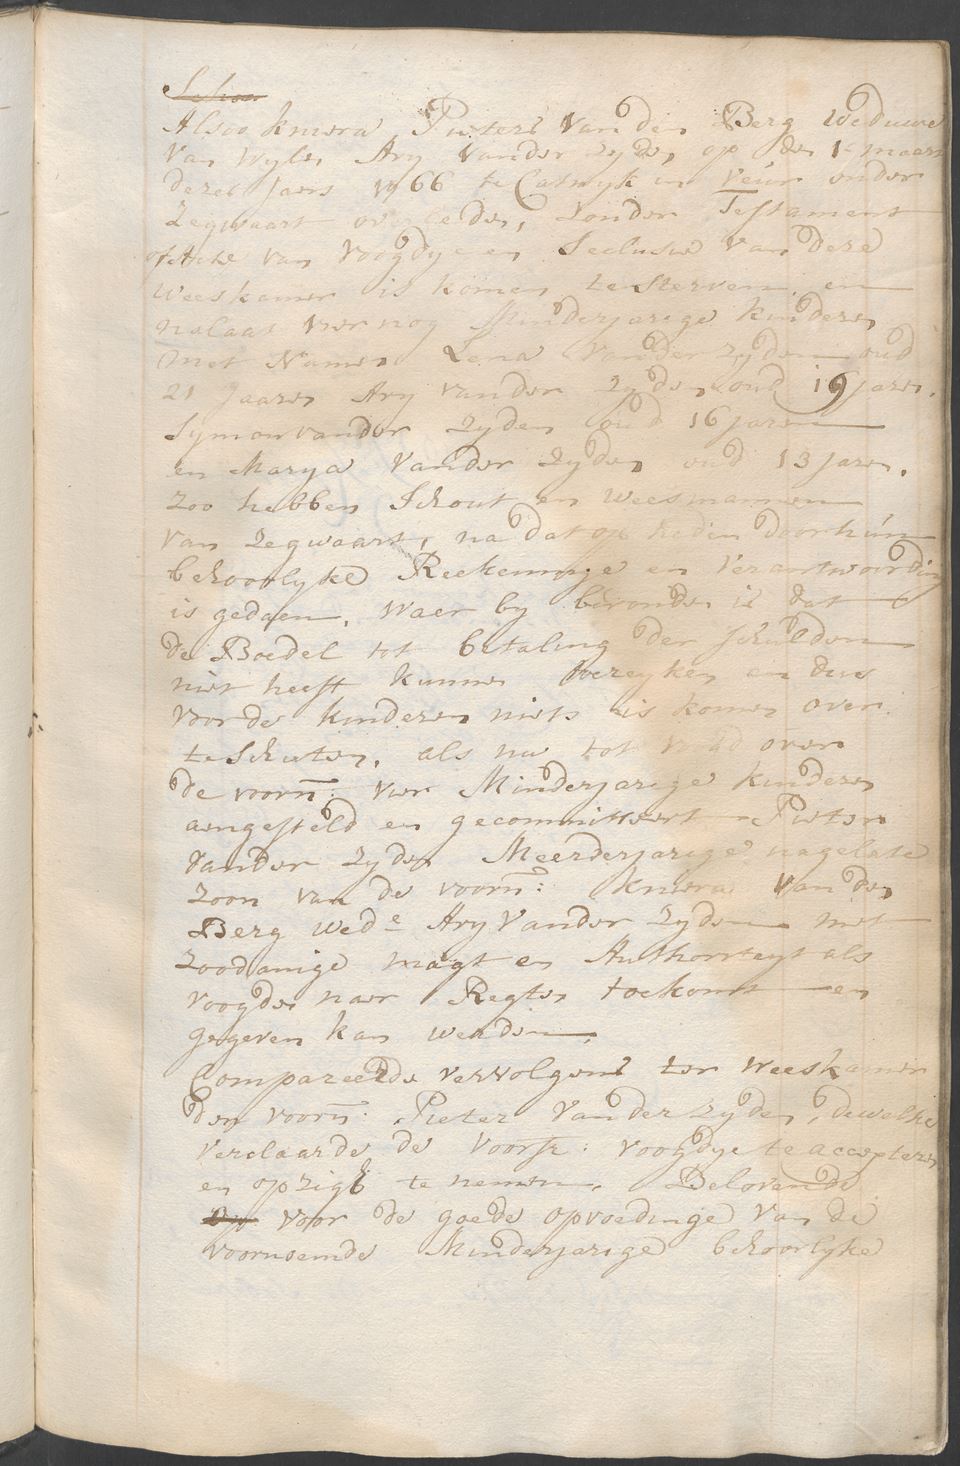 Alsoo Kniera Pieters van den Berg Weduwe
van Wylen Ary vander Zyden, op den 1e maart
dezes Jaers 1766 te Catwyk in Veúr onder
Zegwaart overleden, Zonder Testament
ofte Acte van Voogdye en Seclusie van deze
Weeskamer is komen te sterven, en
nalaat vier nog Minderjarige kinderen
met Namen Lena van der Zyden oud
21 Jaaren Ary vander Zyden oud 19 jaren,
Symon vander Zyden oud 16 jaren
en Marya vander Zyden oud 13 jaren.
Zoo hebben Schout en Weesmannen
van Zegwaart, na dat op heden door hún
behoorlyke Reekeninge en Verantwoording
is gedaen, Waer by bevonden is dat
de Boedel tot betaling der schulden
niet heeft kunnen toereyken en dus
voor de kinderen niets is komen over
te schieten, als nu tot voogd over
de voorn: vier Minderjarige kinderen
aengesteld en gecommitteert Pieter
vander Zyden Meerderjarige nagelate
Zoon van de voorn: Kniera van den
Berg Wede Ary vander Zyden met
Zoodanige magt en Authoriteyt als
voogden naer Regten toekomt en
gegeven kan werden.
Compareerde vervolgens ter Weeskamer
den voorn: Pieter van der Zyden, dewelke
verclaarde de voorsz: voogdye te accepteren
en op zigh te nemen, Belovende
op voor de goede opvoedinge van de
voornoemde Minderjarige behoorlyke